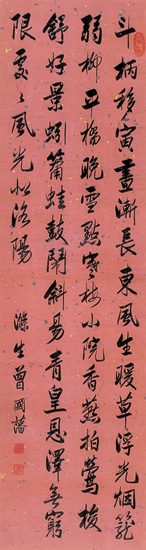 斗柄移寅晝漸長東風生暖草浮光烟籠
弱柳五橋晚雪點寒梅小院香燕拍鶯梭
舒好景蚓簫蛙鼓鬧斜易青皇恩澤無窮
限處〻風光似洛陽
滌生曾國藩